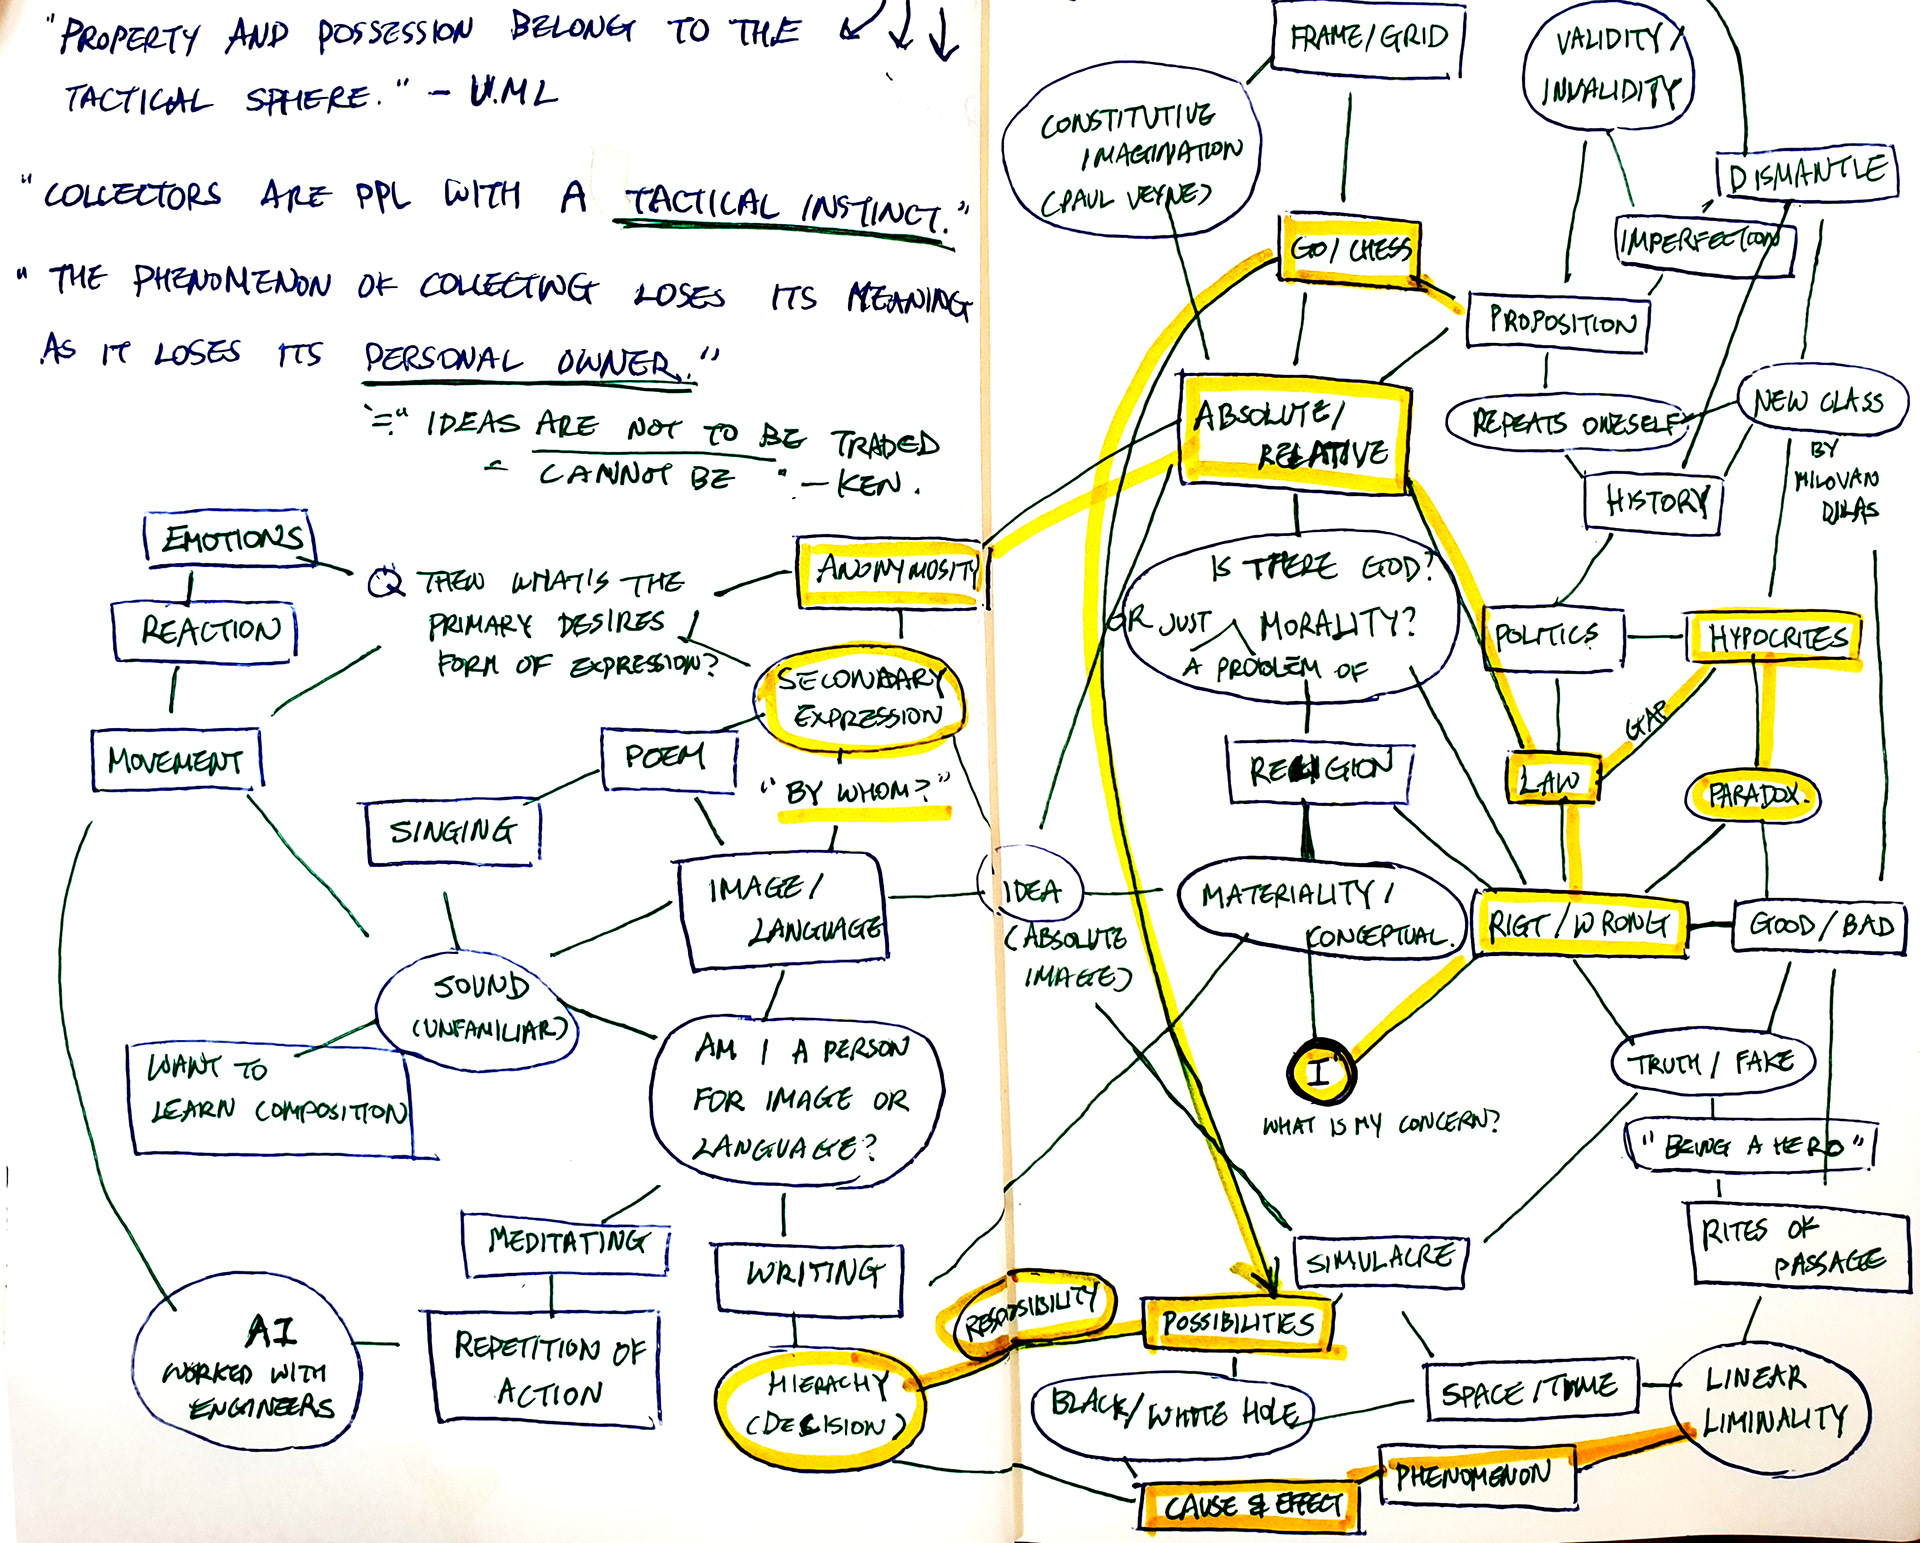 "PROPERTY AND POSSESSION BELONG TO THE
TACTICAL SPHERE." – U.ML
"COLLECTORS ARE PPL WITH A TACTICAL INSTINCT."
"THE PHENOMENON OF COLLECTING LOSES ITS MEANING
AS IT LOSES ITS PERSONAL OWNER."
= "IDEAS ARE NOT TO BE TRADED
CANNOT BE " – KEN.
EMOTIONS
REACTION
MOVEMENT
Q THEN WHAT'S THE
PRIMARY DESIRES
FORM OF EXPRESSION?
ANONYMOSITY
SECONDARY
EXPRESSION
"BY WHOM?"
POEM
SINGING
IMAGE/
LANGUAGE
SOUND
(UNFAMILIAR)
WANT TO
LEARN COMPOSITION
AM I A PERSON
FOR IMAGE OR
LANGUAGE?
MEDITATING
WRITING
AI
WORKED WITH
ENGINEERS
REPETITION OF
ACTION
HIERACHY
(DECISION)
FRAME/GRID
VALIDITY/
INVALIDITY
CONSTITUTIVE
IMAGINATION
(PAUL VEYNE)
DISMANTLE
GO/CHESS
IMPERFECTION
PROPOSITION
ABSOLUTE/
RELATIVE
REPEATS ONESELF
NEW CLASS
BY
MILOVAN
DJILAS
HISTORY
IS THERE GOD?
OR JUST MORALITY?
A PROBLEM OF
POLITICS
HYPOCRITES
GAP
RELIGION
LAW
PARADOX.
IDEA
(ABSOLUTE
IMAGE)
MATERIALITY/
CONCEPTUAL.
RIGT/WRONG
GOOD/BAD
I
WHAT IS MY CONCERN?
TRUTH/FAKE
"BEING A HERO"
RITES OF
PASSAGE
SIMULACRE
POSSIBILITIES
BLACK/WHITE HOLE
SPACE/TIME
LINEAR
LIMINALITY
PHENOMENON
CAUSE & EFFECT